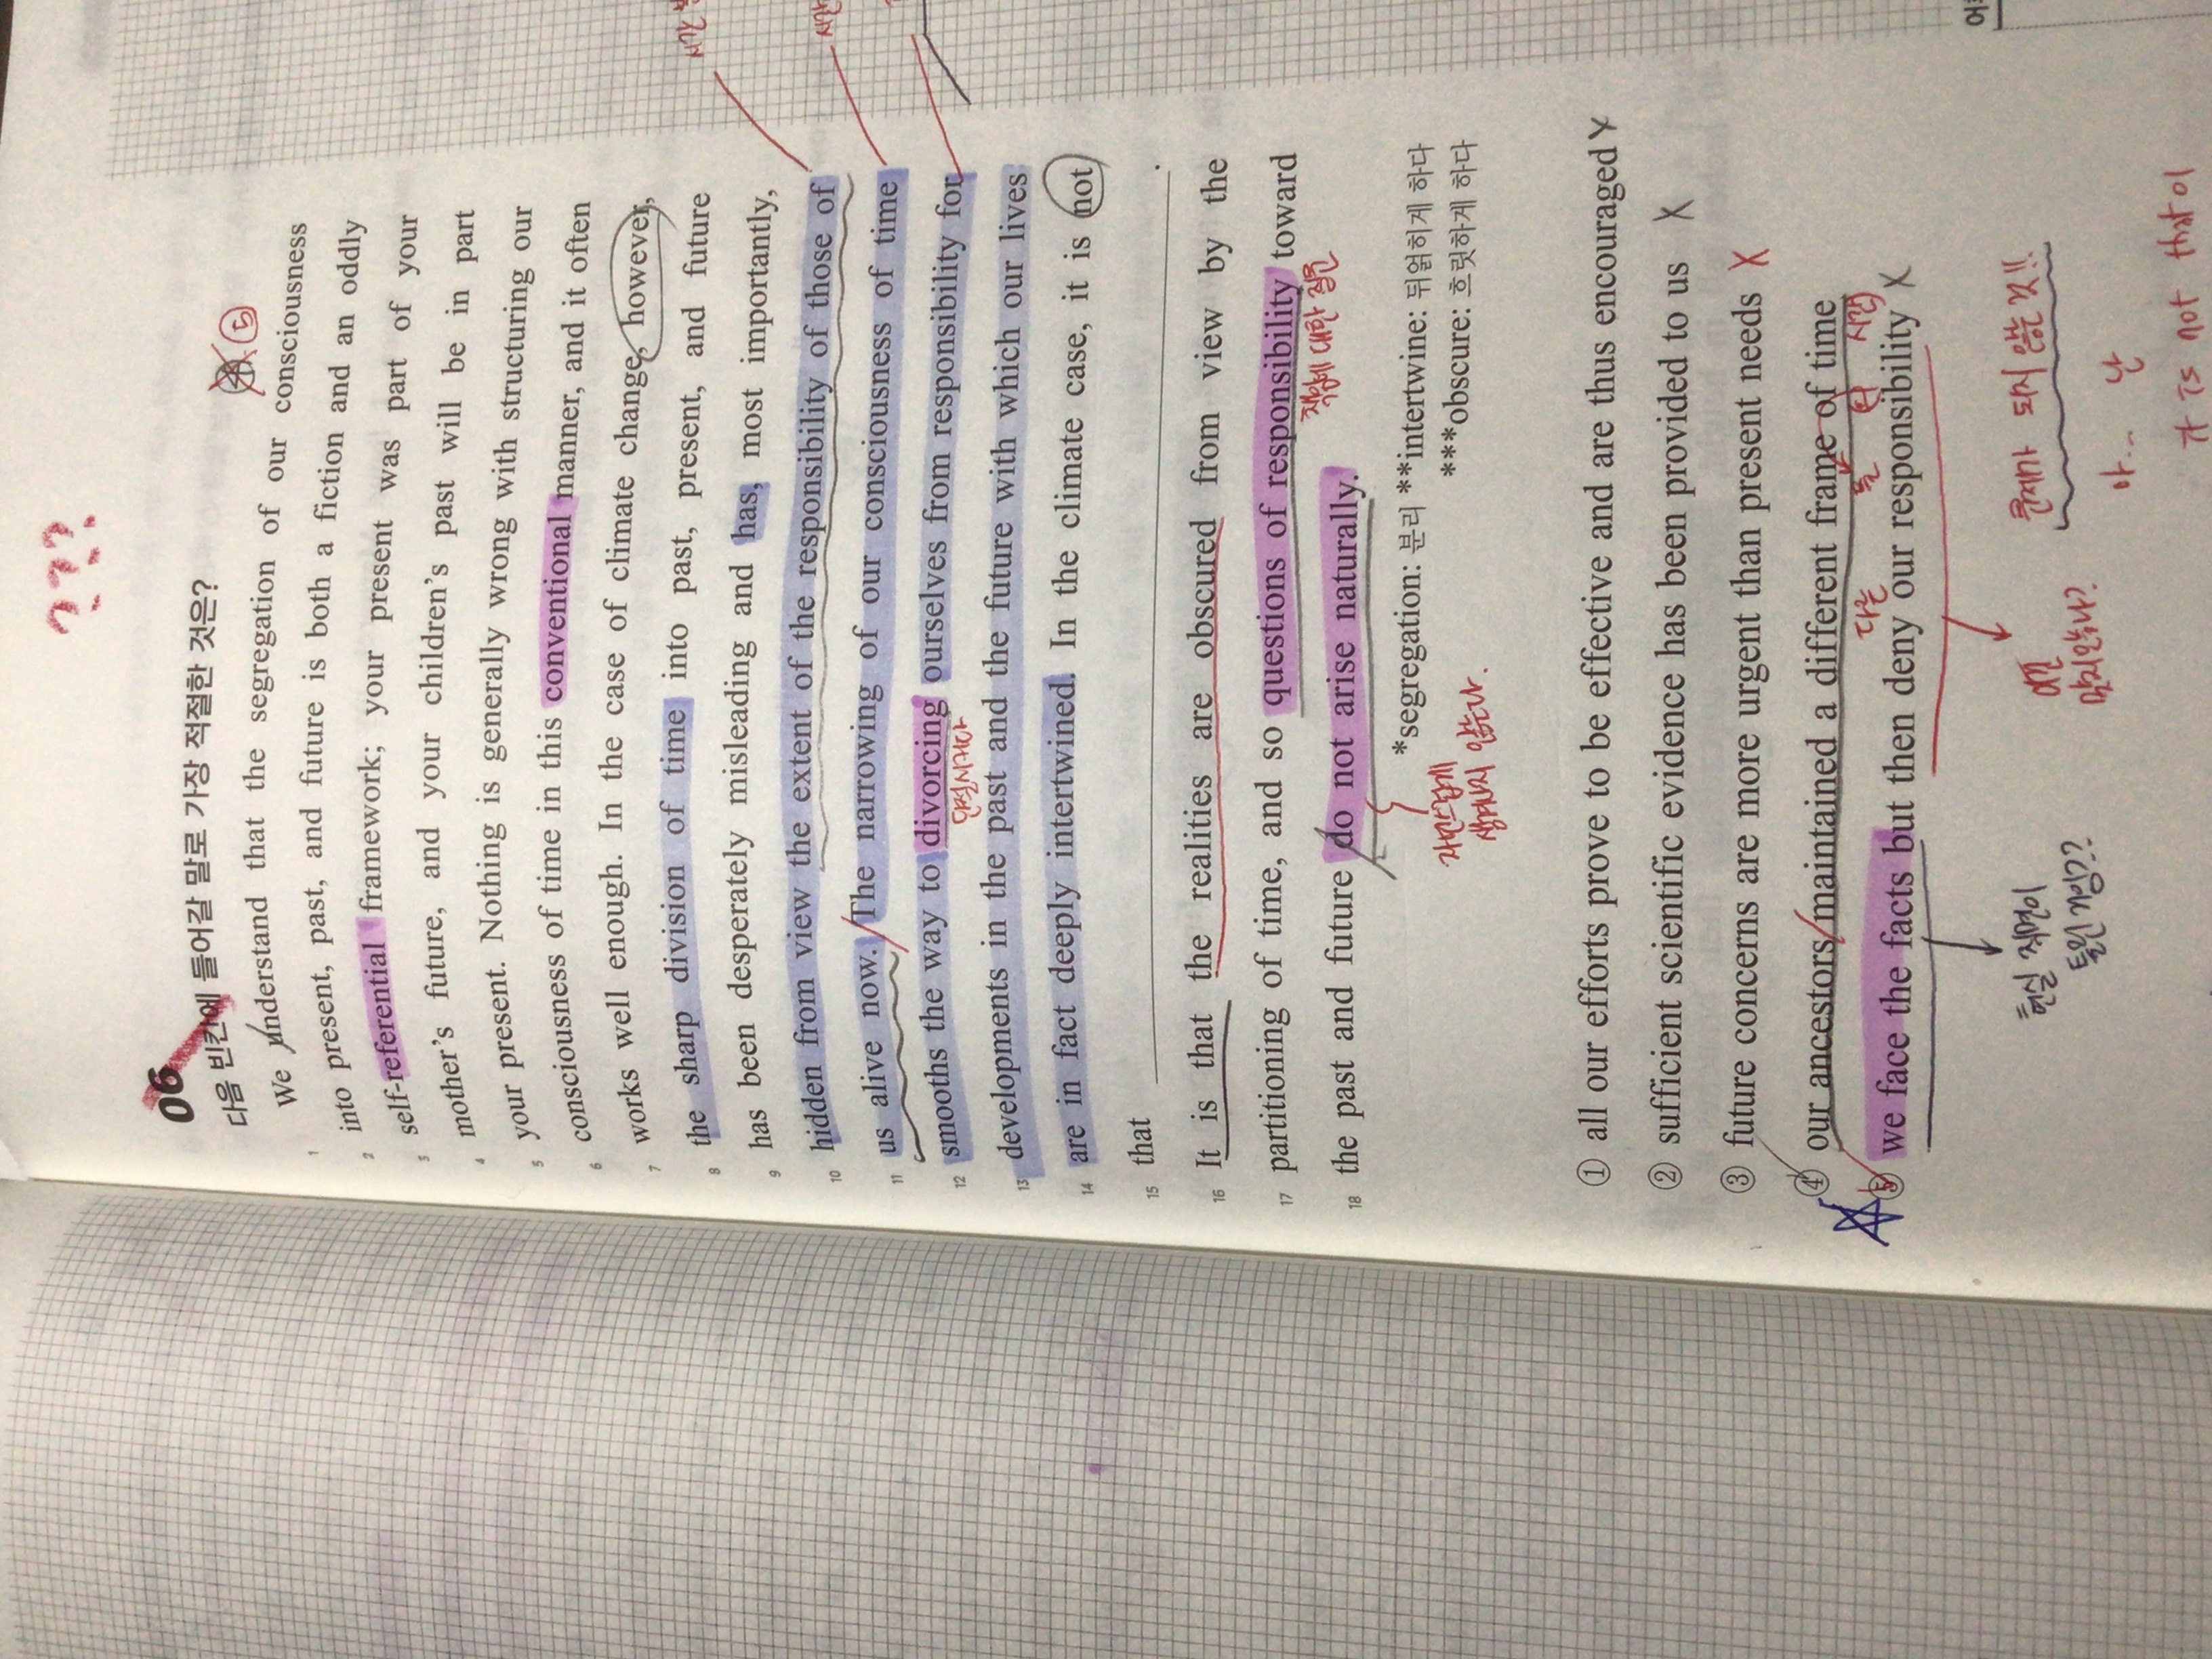 ???
06
다음 빈칸에 들어갈 말로 가장 적절한 것은?
④ ⑤
1 We understand that the segregation of our consciousness
2 into present, past, and future is both a fiction and an oddly
3 self-referential framework; your present was part of your
4 mother's future, and your children's past will be in part
5 your present. Nothing is generally wrong with structuring our
6 consciousness of time in this conventional manner, and it often
7 works well enough. In the case of climate change, however,
8 the sharp division of time into past, present, and future
9 has been desperately misleading and has, most importantly,
10 hidden from view the extent of the responsibility of those of
11 us alive now. The narrowing of our consciousness of time
12 smooths the way to divorcing ourselves from responsibility for
단절시키다
13 developments in the past and the future with which our lives
14 are in fact deeply intertwined. In the climate case, it is not
15 that .
16 It is that the realities are obscured from view by the
17 partitioning of time, and so questions of responsibility toward
책임에 대한 질문
18 the past and future do not arise naturally.
자연스럽게
생겨나지 않는다.
*segregation: 분리 **intertwine: 뒤얽히게 하다
***obscure: 흐릿하게 하다
① all our efforts prove to be effective and are thus encouraged X
② sufficient scientific evidence has been provided to us X
③ future concerns are more urgent than present needs X
④ our ancestors maintained a different frame of time
다른 틀 시간
⑤ we face the facts but then deny our responsibility X
문제가 되지 않는 것!!
맞지않나?
현실 직면이
틀린거임??
아...
it is not that이